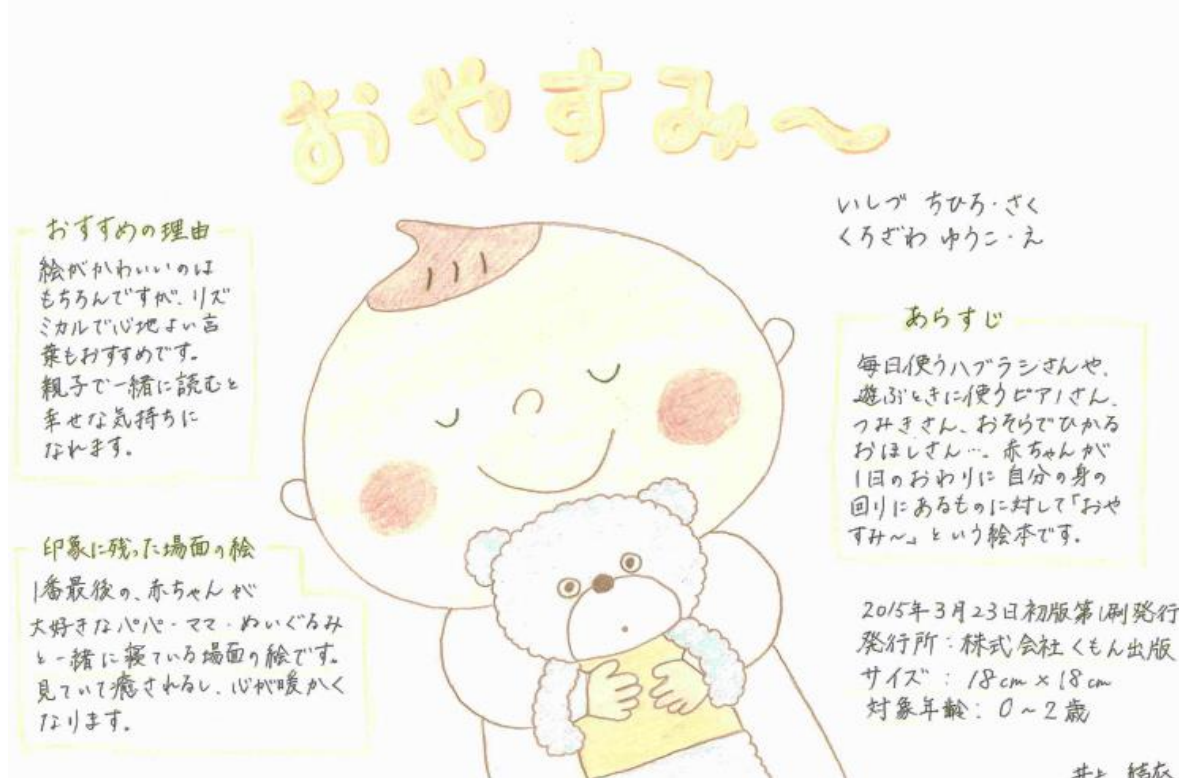 おやすみ〜
いしづ ちひろ・さく
くろざわ ゆうこ・え
おすすめの理由
絵がかわいいのは
もちろんですが、リズ
ミカルで心地よい言
葉もおすすめです。
親子で一緒に読むと
幸せな気持ちに
なれます。
印象に残った場面の絵
1番最後の、赤ちゃんが
大好きなパパ・ママ・ぬいぐるみ
と一緒に寝ている場面の絵です。
見ていて癒されるし、心が暖かく
なります。
あらすじ
毎日使うハブラシさんや、
遊ぶときに使うピアノさん、
つみきさん、おそらでひかる
おほしさん…。赤ちゃんが
1日のおわりに自分の身の
回りにあるものに対して「おや
すみ〜」という絵本です。
2015年3月23日初版第1刷発行
発行所:株式会社くもん出版
サイズ:18cm×18cm
対象年齢:0〜2歳
井上